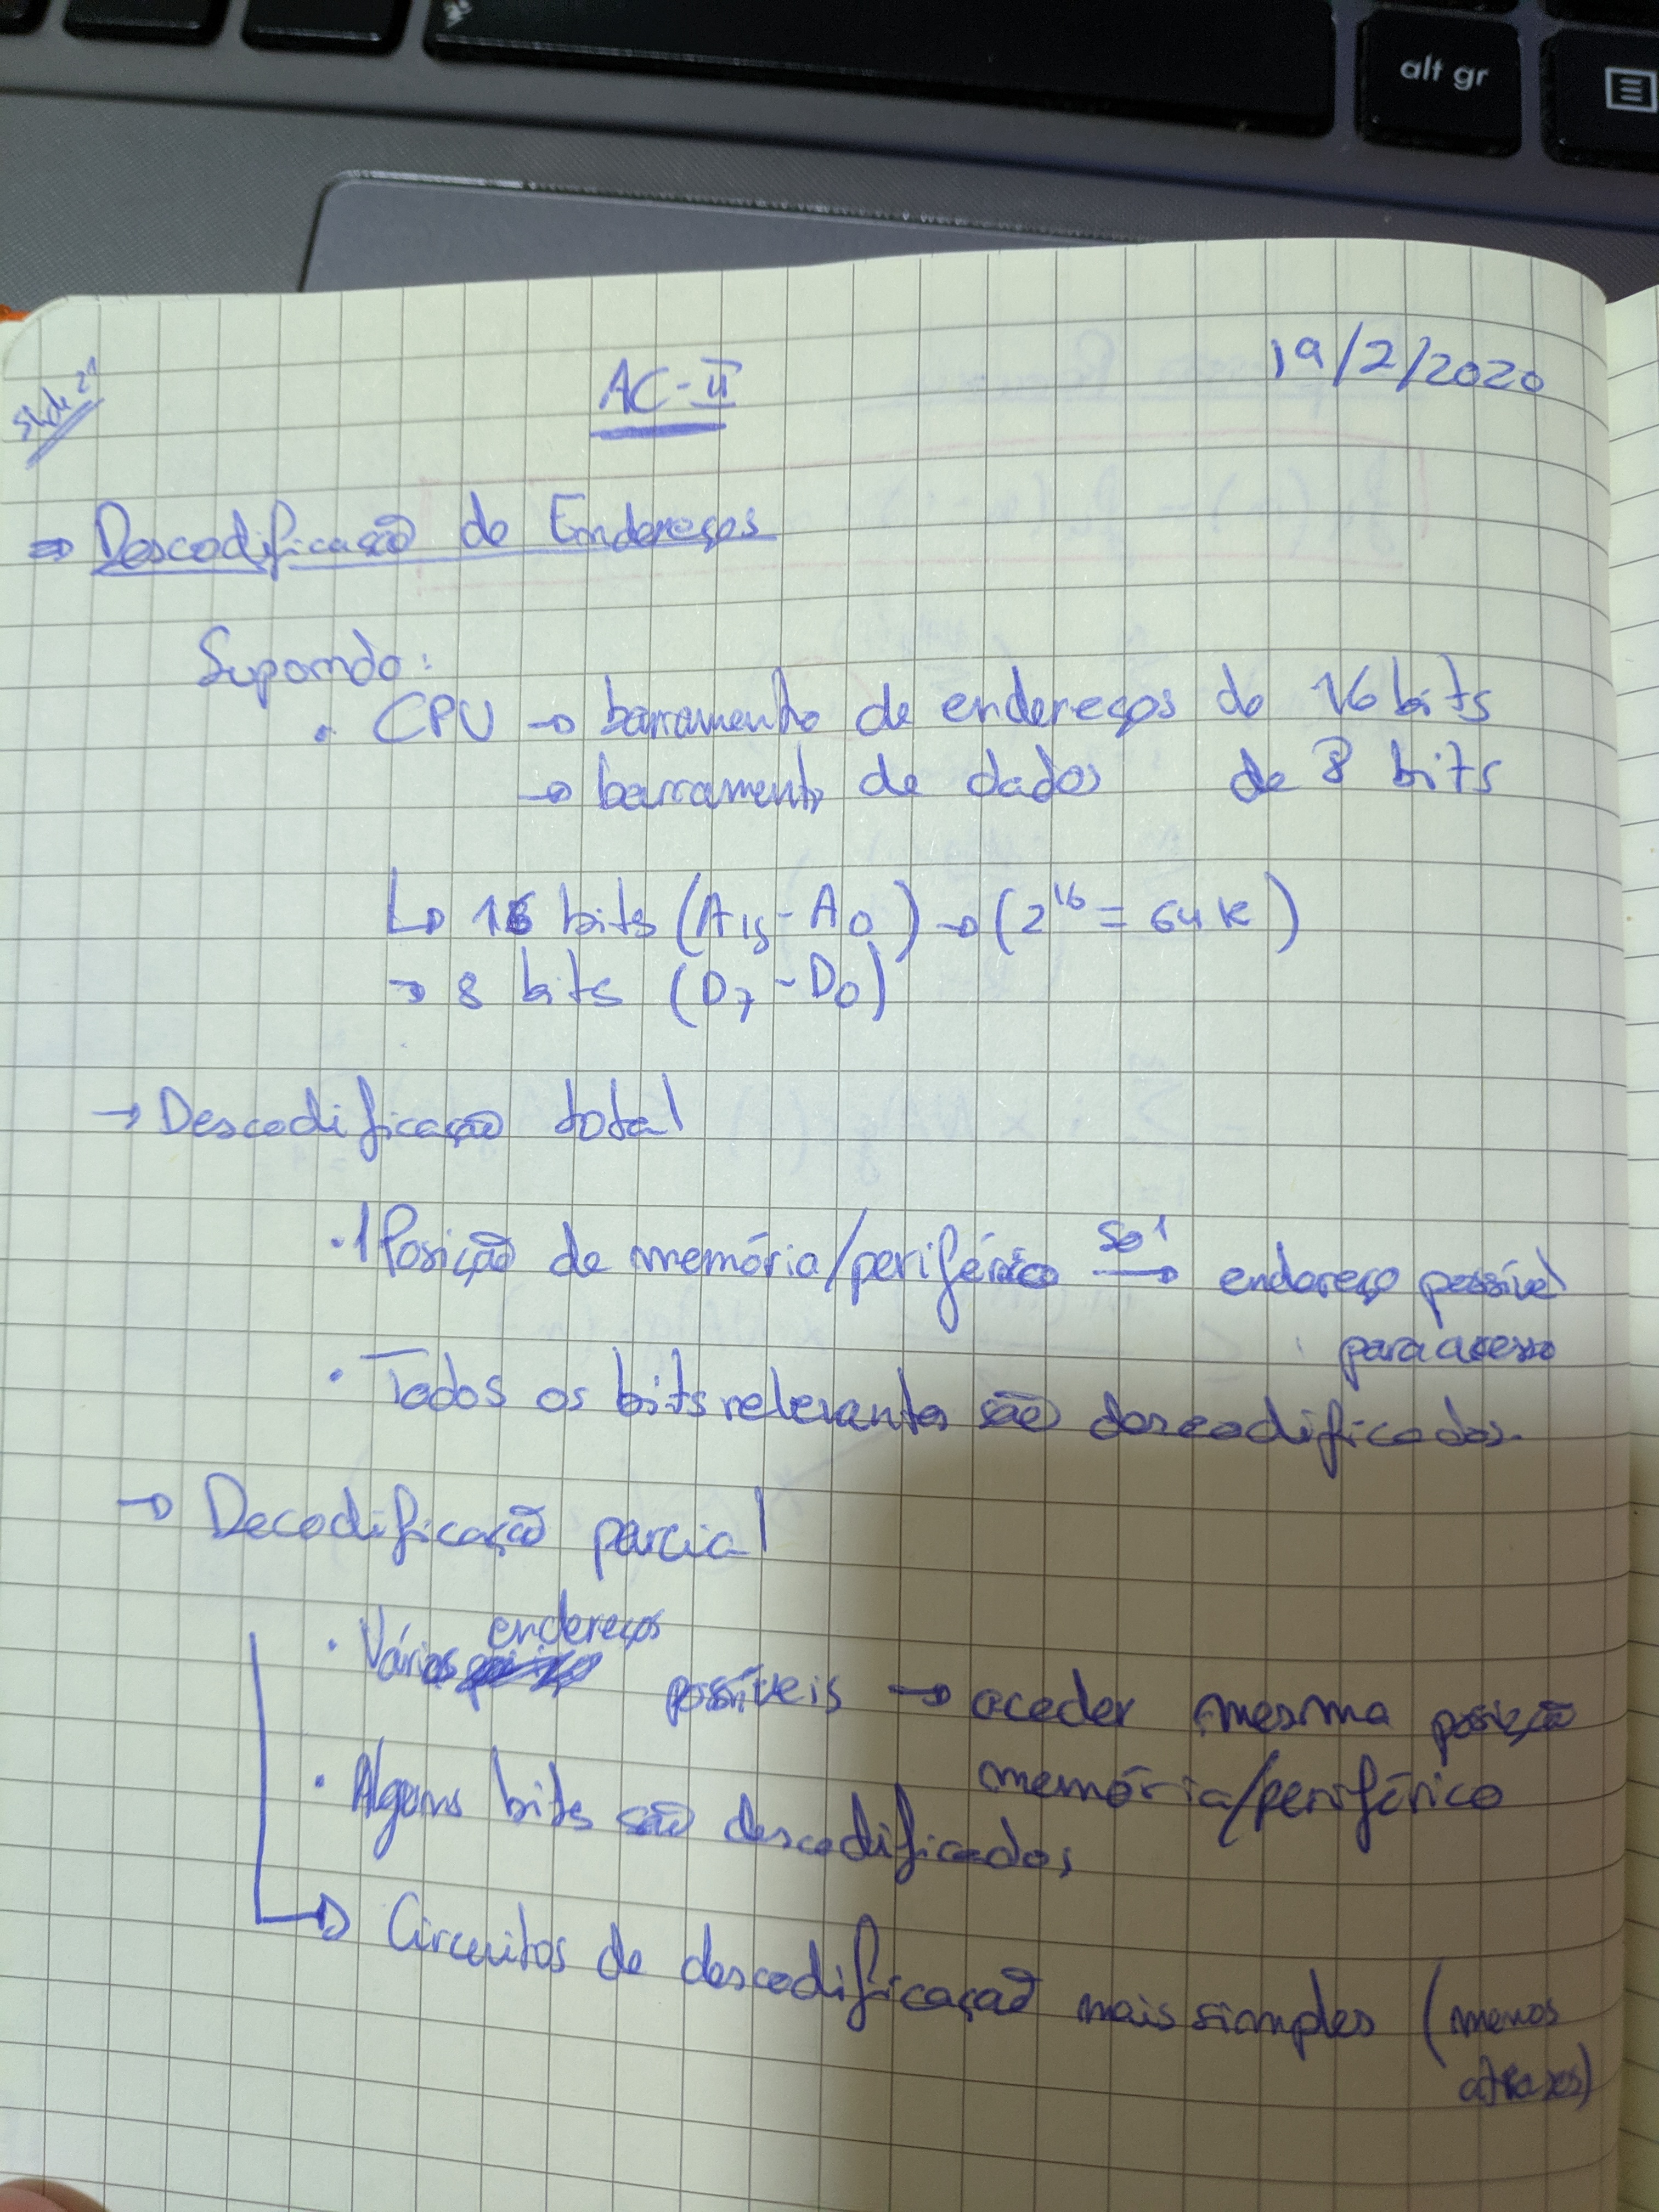 alt gr
Slide 21
AC-II
19/2/2020
⇒ Descodificação de Endereços
Supondo:
• CPU → barramento de endereços de 16 bits
→ barramento de dados de 8 bits
↳ 16 bits (A15 - A0) → (2^16 = 64K)
→ 8 bits (D7 - D0)
→ Descodificação total
• 1 Posição de memória/periférico só 1 → endereço possível
para acesso
• Todos os bits relevantes são descodificados.
→ Decodificação parcial
• Vários endereços possíveis → aceder mesma posição
memória/periférico
• Alguns bits são descodificados
↳ Circuitos de descodificação mais simples (menos
atrasos)